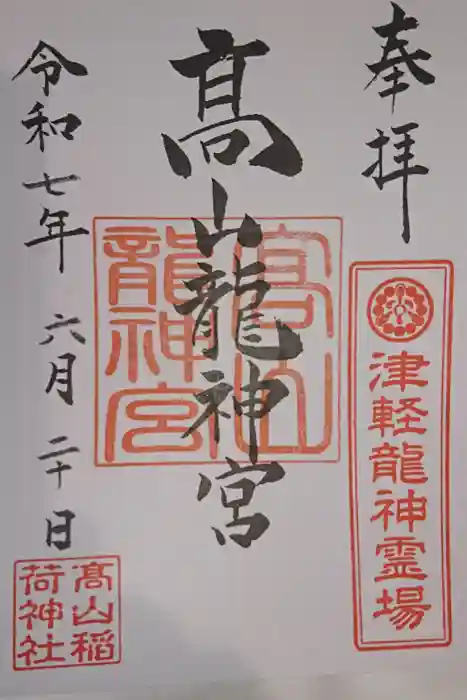 奉拝
津軽龍神霊場
髙山龍神宮
高山
龍神宮
令和七年 六月 二十日
髙山稲
荷神社